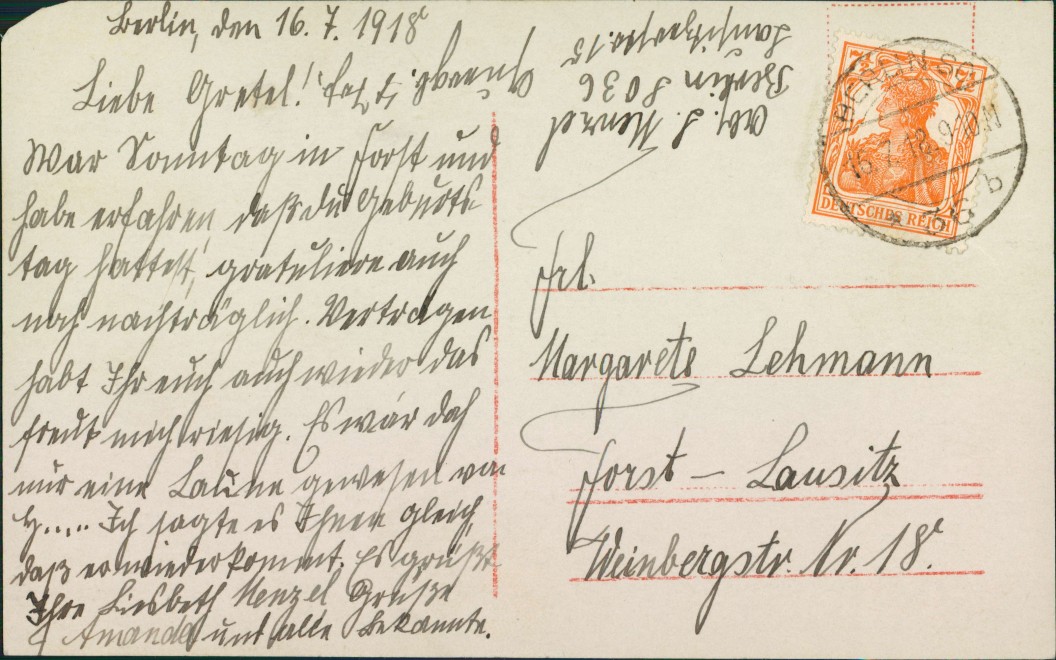 Berlin, den 16. 7. 1918
Liebe Gretel!
War Sonntag in Forst und
habe erfahren daß du Geburts
tag hattest, gratuliere auch
noch nachträglich. Vertragen
habt Ihr euch auch wieder das
freut mich riesig. Es war doch
nur eine Laune gewesen von
H..... Ich sagte es Ihnen gleich,
daß er wiederkommt. Es grüßt
Ihre Liesbeth Menzel Grüße
Amanda und alle Bekannte.
Abs. L. Menzel
Berlin S O 36
Lausitzerstr. 15
7½ 7½
DEUTSCHES REICH
BERLIN SO
16.7.18.9-10.N
* 36 b
Frl.
Margarete Lehmann
Forst – Lausitz
Weinbergstr. Nr. 18.